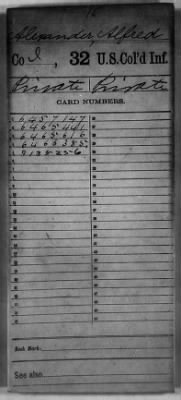 16
Alexander, Alfred
Co I, 32 U.S. Col'd Inf.
Private Private
CARD NUMBERS.
6457147
6465441
6465616
6465385
9185256
Book Mark:
See also